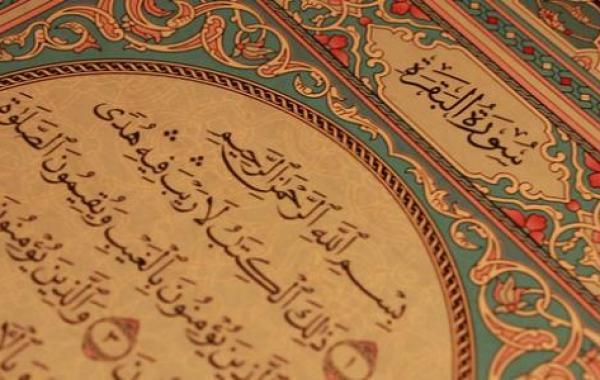 سُورَةُ الْبَقَرَةِ
بِسْمِ اللَّهِ الرَّحْمَٰنِ الرَّحِيمِ
١ ذَٰلِكَ الْكِتَٰبُ لَا رَيْبَ ۛ فِيهِ ۛ هُدًى
الَّذِينَ يُؤْمِنُونَ بِالْغَيْبِ وَيُقِيمُونَ الصَّلَوٰةَ
٣ وَالَّذِينَ يُؤْمِنُونَ